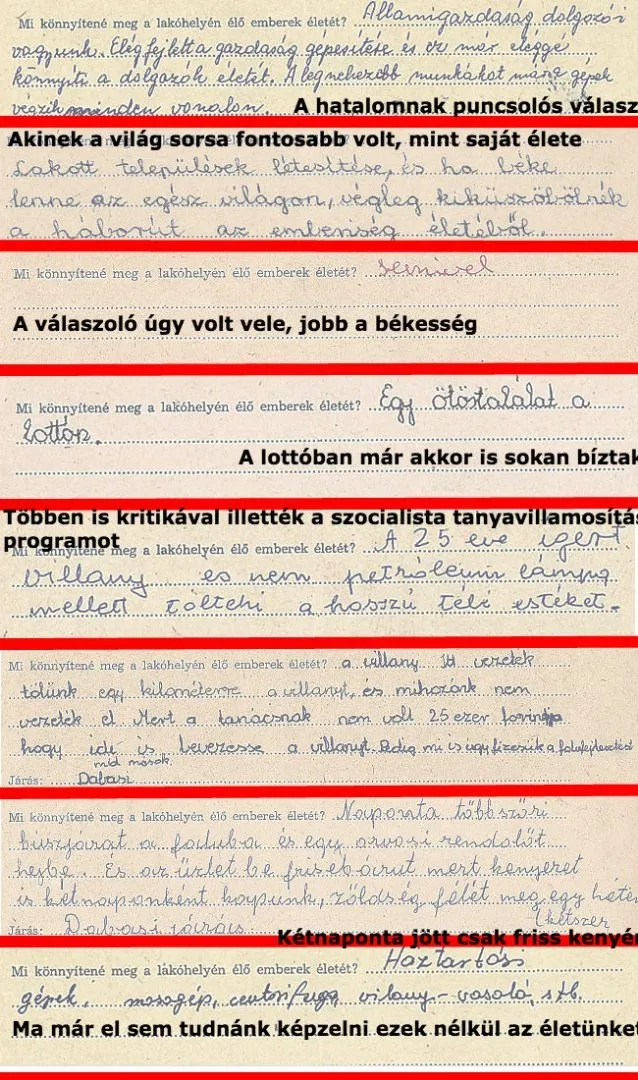 Mi könnyítené meg a lakóhelyén élő emberek életét? Állami gazdaság dolgozói
vagyunk. Elég fejlett a gazdaság gépesítése és ez már eléggé
könnyíti a dolgozók életét. A legnehezebb munkákat már a gépek
végzik minden vonalon. A hatalomnak puncsolós válasz
Akinek a világ sorsa fontosabb volt, mint saját élete
Lakott települések létesítése, és ha béke
lenne az egész világon, végleg kiküszöbölnék
a háborút az emberiség életéből.
Mi könnyítené meg a lakóhelyén élő emberek életét? semmivel
A válaszoló úgy volt vele, jobb a békesség
Mi könnyítené meg a lakóhelyén élő emberek életét? Egy ötöstalálat a
lottón.
A lottóban már akkor is sokan bíztak
Többen is kritikával illették a szocialista tanyavillamosítás
programot
Mi könnyítené meg a lakóhelyén élő emberek életét? A 25 éve igért
villany és nem petróleum lámpa
mellett tölteni a hosszú téli estéket.
Mi könnyítené meg a lakóhelyén élő emberek életét? a villany Itt vezeték
tőlünk egy kilométerre a villanyt, és mihozánk nem
vezeték el Mert a tanácsnak nem volt 25 ezer forintja
hogy ide is bevezesse a villanyt. Pedig mi is úgy fizessük a falufejlesztést
mid mások.
Járás: Dabasi
Mi könnyítené meg a lakóhelyén élő emberek életét? Naponta többszöri
buszjárat a faluba és egy orvosi rendelőt
hejbe. És az üzlet be friseb árut mert kenyeret
is kétnaponként kapunk, zöldség félét meg egy héten
kétszer
Járás: Dabasi járás
Kétnaponta jött csak friss kenyér
Mi könnyítené meg a lakóhelyén élő emberek életét? Háztartási
gépek. mosogép, centrifuga vilany-vasaló, stb.
Ma már el sem tudnánk képzelni ezek nélkül az életünket